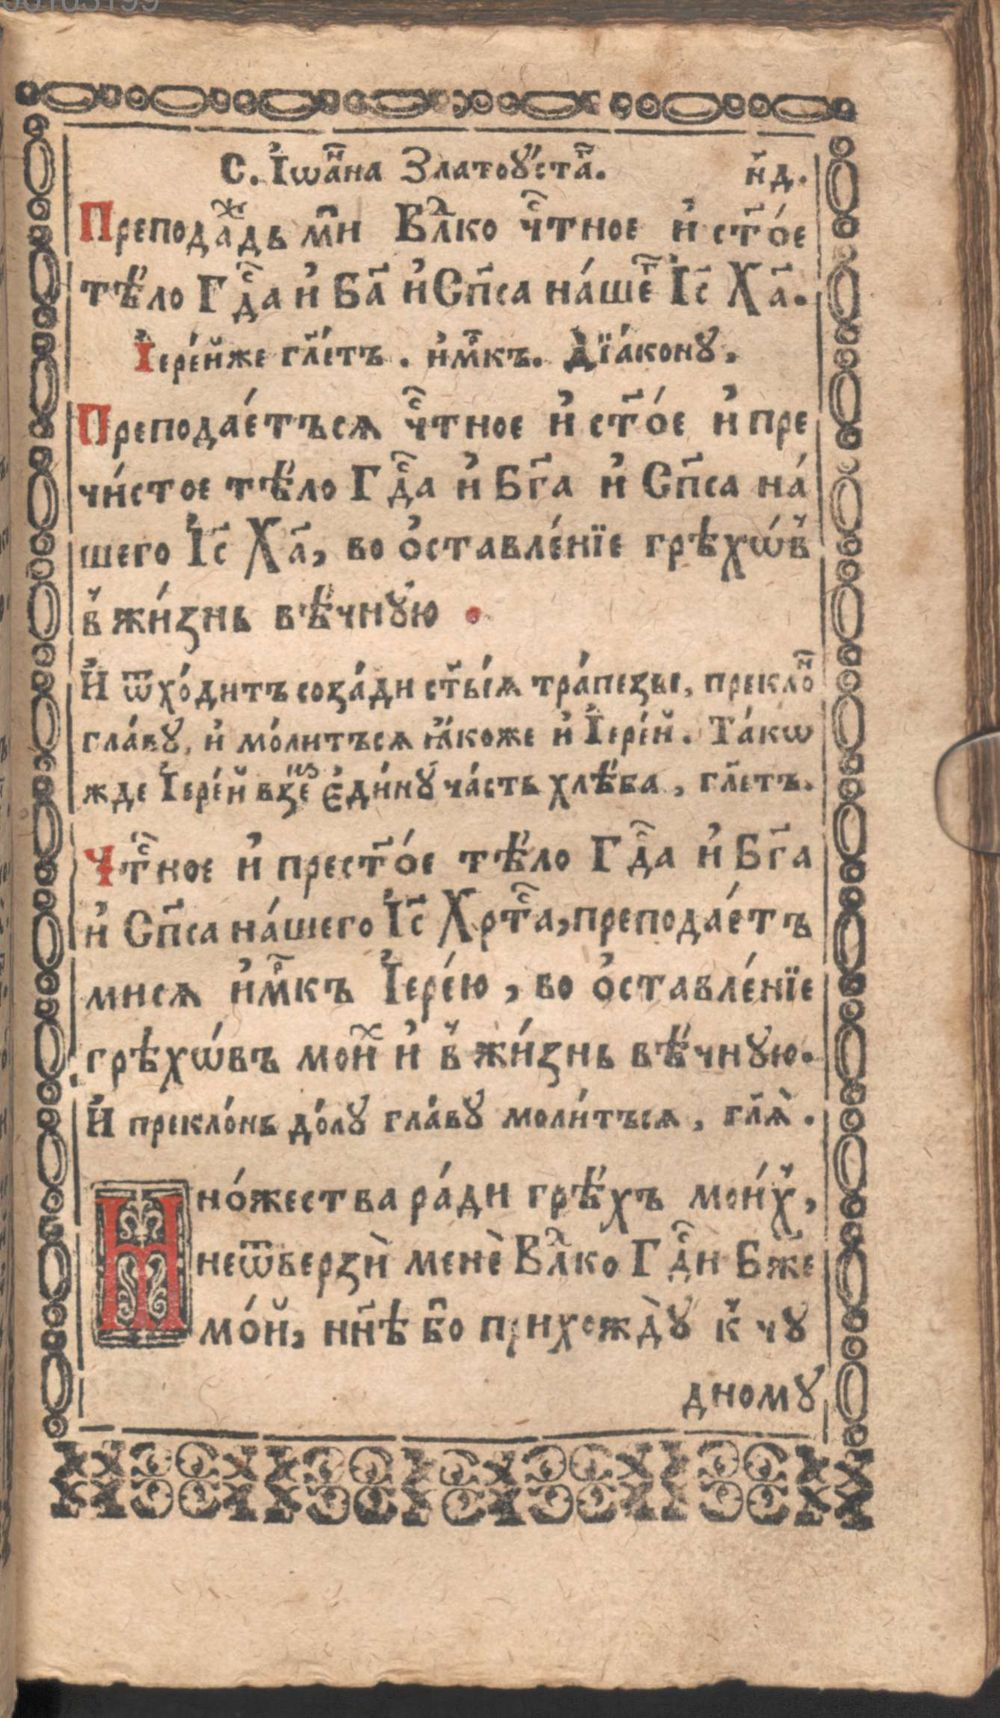 00105199
С. І҆ѡа҆́нⷩ҇а Златоꙋ́стаⷢ҇. н҃д.
Преподаⷤ҇дь мⷩ҇и Влⷣко чⷭ҇тное и҆ ст҃о́е
тѣ́ло Гдⷭ҇а и҆ Ба҃ и҆ Сп҃са на́шеⷢ҇ І҆с҃ Ха҃.
І҆ере́йже гл҃етъ. и҆мⷬ҇къ. Дїа́кону,
Преподае́тъсѧ чⷭ҇тное и҆ ст҃о́е и҆ пре
чи́стое тѣ́ло Гдⷭ҇а и҆ Бг҃а и҆ Сп҃са на́
шего І҆с҃ Ха҃, во ѻ҆ставле́нїе грѣхѡ́в̾
в̾ жи́знь вѣ́чную
И҆ ѿхо́дитъ соза́ди ст҃ы́ѧ тра́пезы, преклоⷩ҇
гла́ву, и҆ мо́литъсѧ ꙗ҆́коже и҆ І҆ере́й. Та́кѡ
жде І҆ере́й взеⷨ҇ е҆ди́ну ча́сть хлѣ́ба, гл҃етъ.
Чтⷭ҇ное и҆ прест҃о́е тѣ́ло Гдⷭ҇а и҆ Бг҃а
и҆ Сп҃са на́шего І҆с҃ Хртⷭ҇а, преподае́тъ
мисѧ и҆мⷬ҇къ І҆ере́ю, во ѻ҆ставле́нїе
грѣхѡ́въ моиⷯ҇ и҆ в̾ жи́знь вѣ́чную.
И҆ прекло́нь до́лу гла́ву моли́тъсѧ, гл҃ѧ̀.
Мно́жества ра́ди грѣ́хъ мои́х̾,
неѿверзѝ менѐ Влⷣко Гдⷭ҇и Бж҃е
мо́й, нн҃ѣ бо прихожд̀у к̾ чу
дному